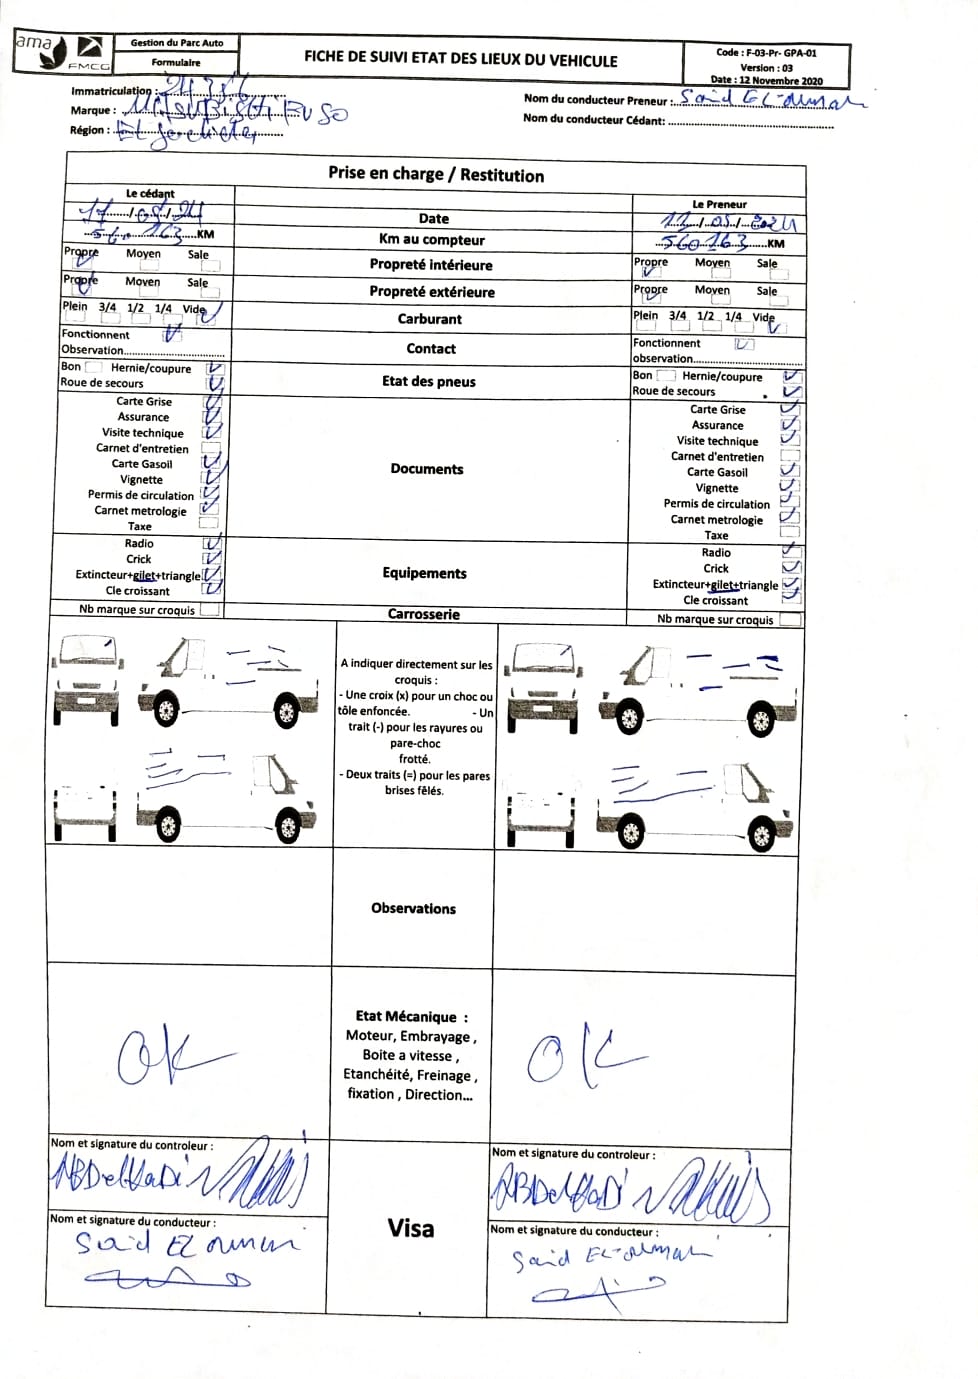 ama
FMCG
Gestion du Parc Auto
Formulaire
FICHE DE SUIVI ETAT DES LIEUX DU VEHICULE
Code : F-03-Pr- GPA-01
Version : 03
Date : 12 Novembre 2020
Immatriculation :
Marque : FUSO
Région :
Nom du conducteur Preneur : Said
Nom du conducteur Cédant:
Prise en charge / Restitution
Le cédant
Le Preneur
Date
560163 KM
Km au compteur
560163 KM
Propre Moyen Sale
Propreté intérieure
Propre Moyen Sale
Propre Moyen Sale
Propreté extérieure
Propre Moyen Sale
Plein 3/4 1/2 1/4 Vide
Carburant
Plein 3/4 1/2 1/4 Vide
Fonctionnent
Observation
Contact
Fonctionnent
observation
Bon Hernie/coupure
Roue de secours
Etat des pneus
Bon Hernie/coupure
Roue de secours
Carte Grise
Assurance
Visite technique
Carnet d'entretien
Carte Gasoil
Vignette
Permis de circulation
Carnet metrologie
Taxe
Documents
Carte Grise
Assurance
Visite technique
Carnet d'entretien
Carte Gasoil
Vignette
Permis de circulation
Carnet metrologie
Taxe
Radio
Crick
Extincteur+gilet+triangle
Cle croissant
Equipements
Radio
Crick
Extincteur+gilet+triangle
Cle croissant
Nb marque sur croquis
Carrosserie
Nb marque sur croquis
A indiquer directement sur les
croquis :
- Une croix (x) pour un choc ou
tôle enfoncée. - Un
trait (-) pour les rayures ou
pare-choc
frotté.
- Deux traits (=) pour les pares
brises fêlés.
Observations
OK
Etat Mécanique :
Moteur, Embrayage ,
Boite a vitesse ,
Etanchéité, Freinage ,
fixation , Direction...
OK
Nom et signature du controleur :
ABDelHaDi
Nom et signature du conducteur :
Said
Visa
Nom et signature du controleur :
ABDelHaDi
Nom et signature du conducteur :
Said